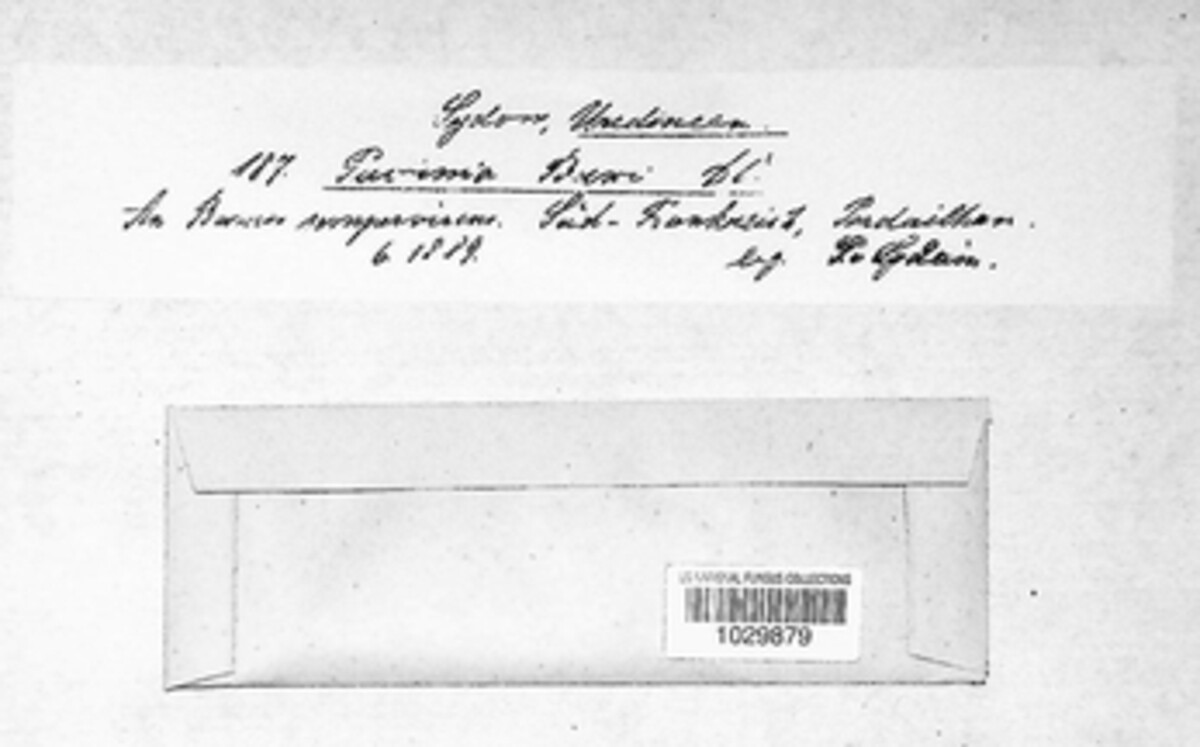 Sydow, Uredineen.
187. Puccinia Buxi DC.
An Buxus sempervirens. Süd-Frankreich, Pardailhan.
6. 1889. leg.
US NATIONAL FUNGUS COLLECTIONS
1029879